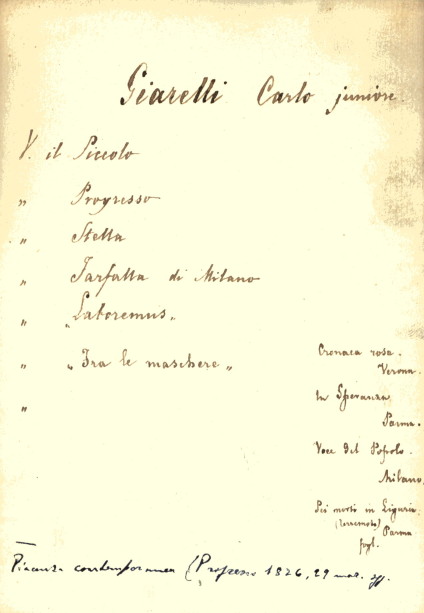 Giarelli Carlo juniore.
V. il Piccolo
" Progresso
" Stella
" Farfalla di Milano
" „Laboremus„
" „Fra le maschere„
"
Cronaca rosa.
Verona.
La Speranza
Parma.
Voce del Popolo.
Milano.
Pei morti in Liguria
(terremoto) Parma
fogl.
Piacenza contemporanea (Progresso 1826, 29 mar. sg.